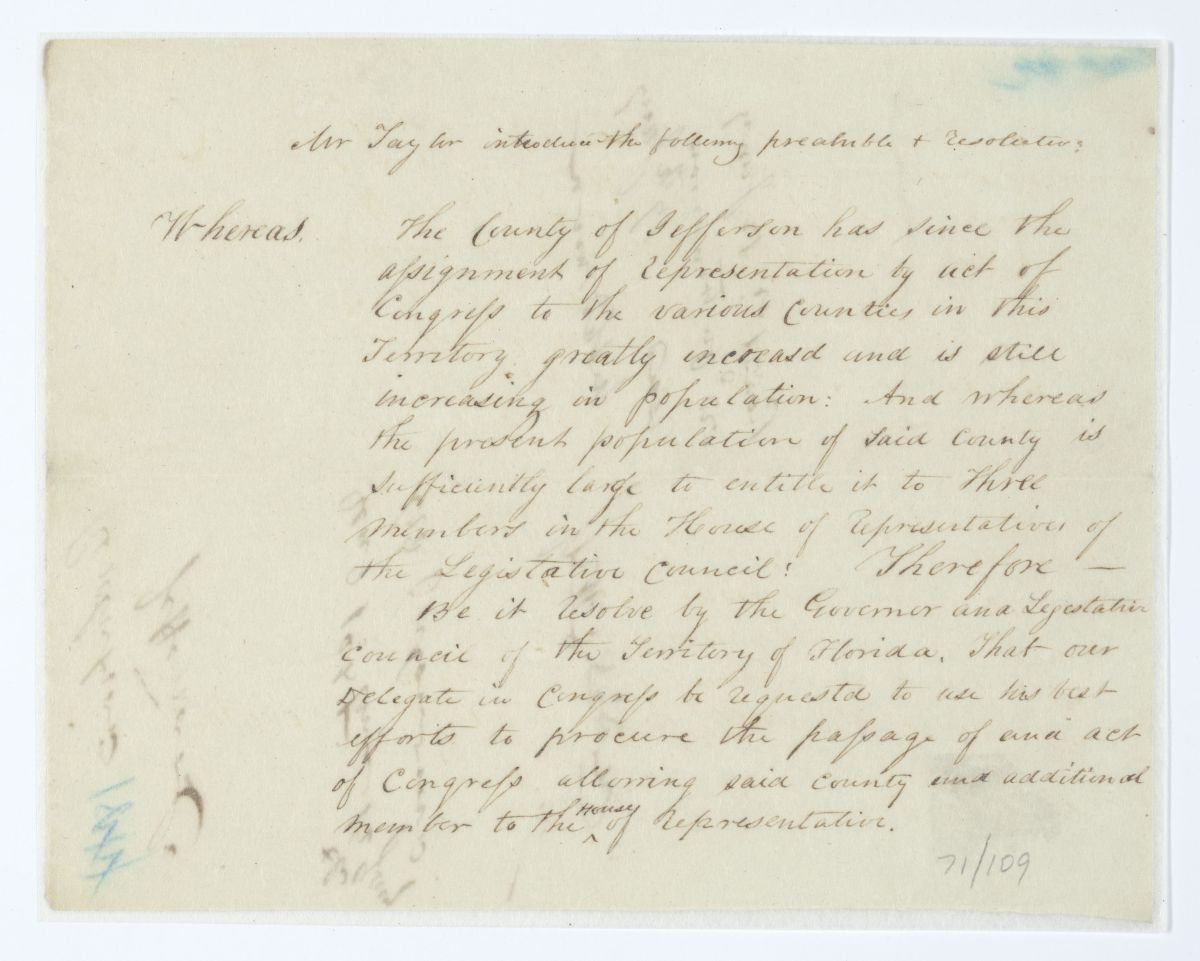 Mr Taylor introduce the following preabuble & resolution:
Whereas. The County of Jefferson has since the
assignment of Representation by act of
Congress to the various Counties in this
Territory greatly increasd and is still
increasing in population: And whereas
the present population of said County is
sufficiently large to entitle it to Three
Members in the House of Representatives of
the Legislative Council: Therefore —
Be it resolve by the Governor and Legestative
Council of the Territory of Florida. That our
Delegate in Congress be requestd to use his best
efforts to procure the passage of and act
of Congress allowing said County and additional
member to the ^ House of Representative.
71/109
1844